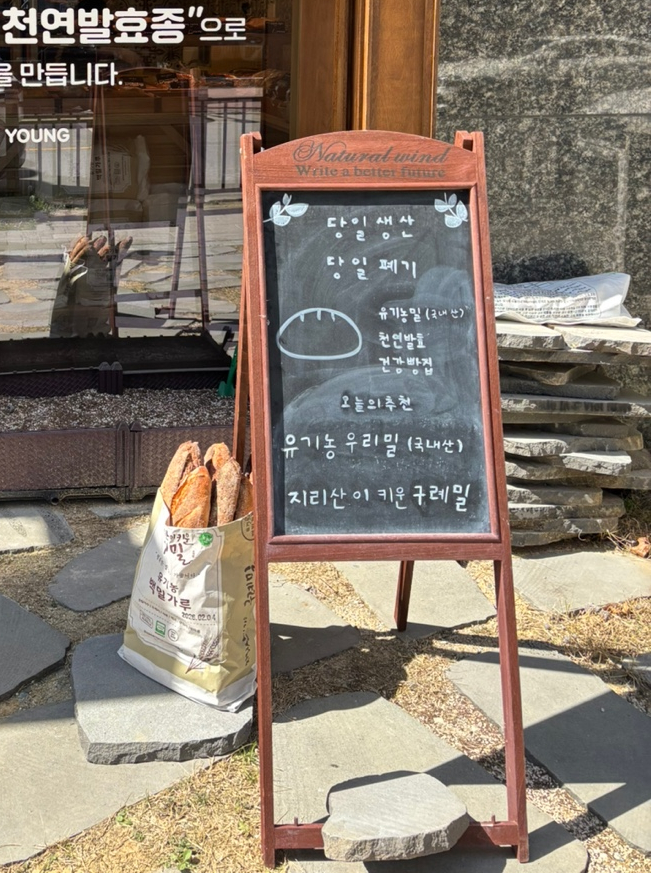 천연발효종"으로
을 만듭니다.
YOUNG
Natural wind
Write a better future
당일 생산
당일 폐기
유기농밀 (국내산)
천연발효
건강빵집
오늘의추천
유기농 우리밀 (국내산)
지리산이 키운 구례밀
유기농
백밀가루